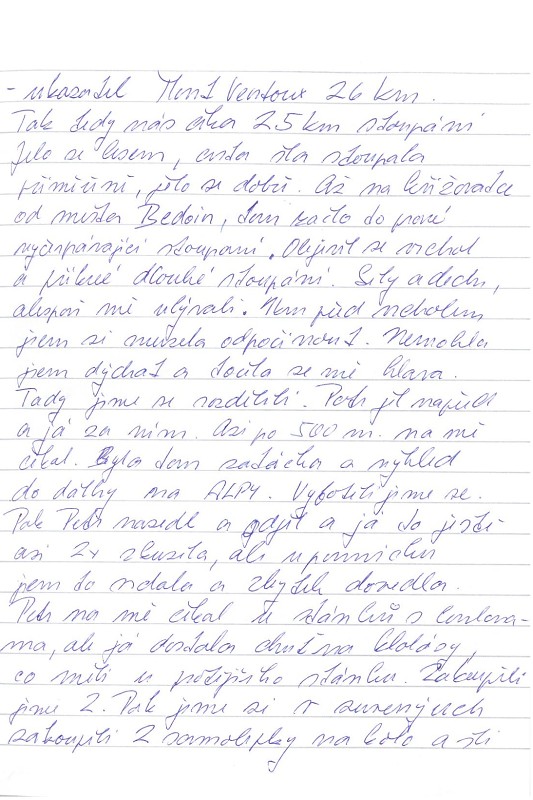 - ukazatel Mont Ventoux 26 km.
Tak tedy nás čeká 25 km stoupání
Jelo se lesem, cesta sta stoupala
přiměřeně, jelo se dobře. Až na křižovatce
od města Bedoin, tam začlo to pravé
vyčerpávající stoupaní. Objevil se vrchol
a příkré dlouhé stoupání. Síly a dechu,
alespoň mě ubývalo. Km před vrcholem
jsem si musela odpočinout. Nemohla
jsem dýchat a točila se mě hlava.
Tady jsme se rozdělili. Petr jel napřed
a já za ním. Asi po 500 m. na mě
čekal. Byla tam zatáčka a výhled
do dálky na ALPY. Vyfotili jsme se.
Pak Petr nasedl a odjel a já to ještě
asi 2x zkusila, ale u pomníčku
jsem to vzdala a zbytek dovedla.
Petr na mě čekal u stánků s
ma, ale já dostala chuť na klobásy,
co měli u pozějšího stánku. Zakoupili
jsme 2. Pak jsme si v suvenýrech
zakoupili 2 samolepky na kolo a šli